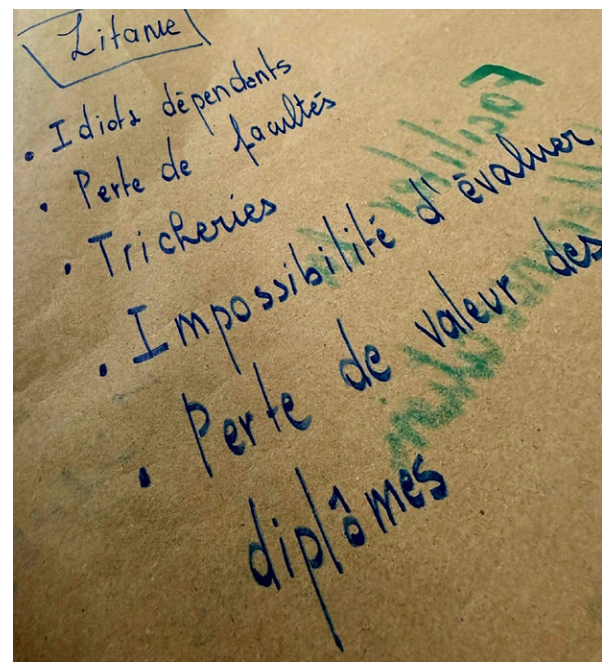 Litanie
. Idiots dépendants
. Perte de facultés
. Tricheries
. Impossibilité d'évaluer
. Perte de valeur des
diplômes